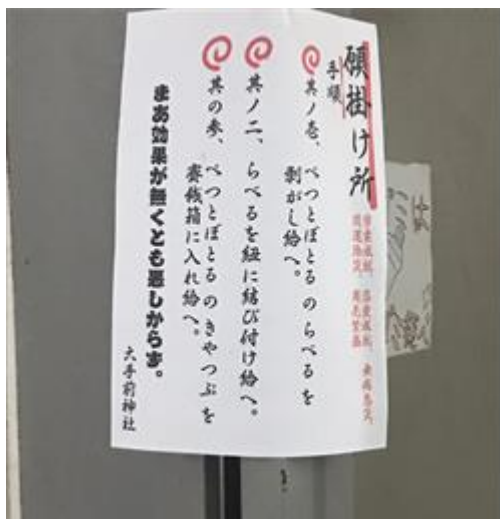 願掛け所
手順
其ノ壱、ぺつとぼとる の らべるを
剥がし給へ。
其ノ二、らべるを紐に結び付け給へ。
其の参、ぺつとぼとる の きやつぷを
賽銭箱に入れ給へ。
まあ効果が無くとも悪しからず。
大手前神社